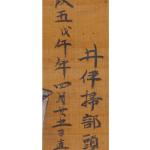 井伊掃部頭
政五戊午年四月廿三日直